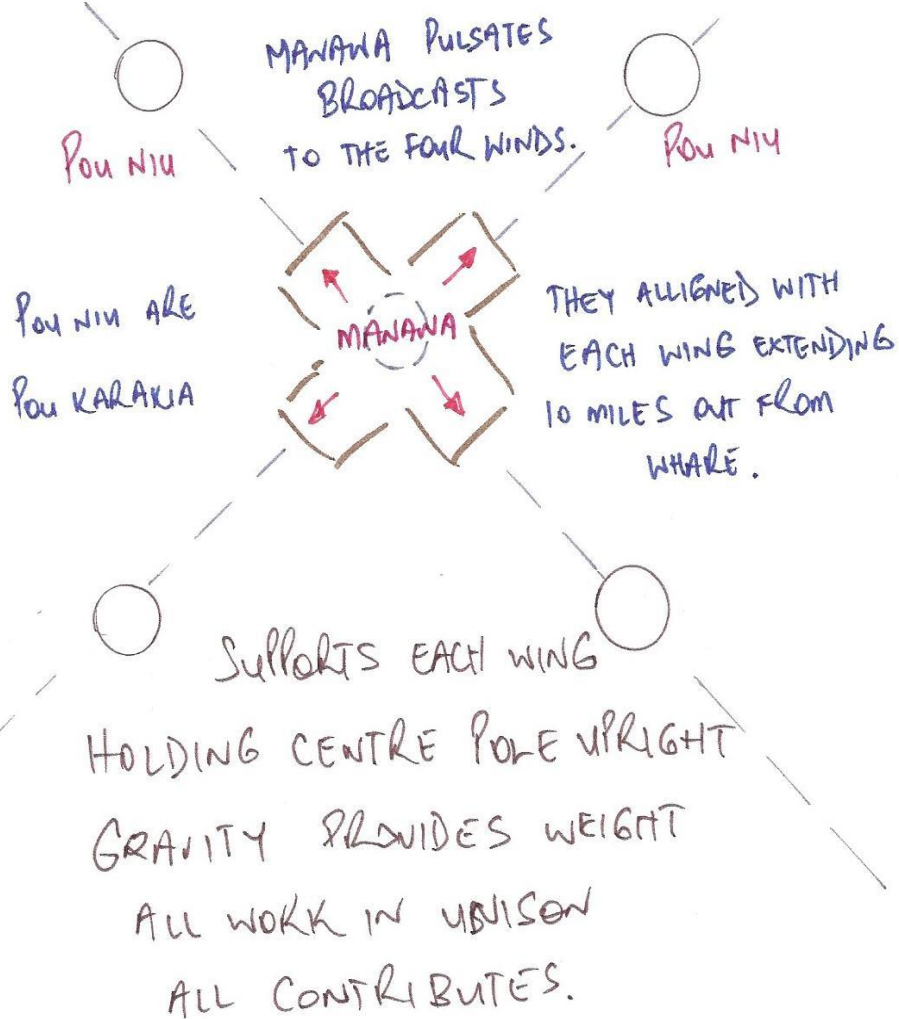 MANAWA PULSATES
BROADCASTS
TO THE FOUR WINDS.
POU NIU
POU NIU
POU NIU ARE
POU KARAKIA
MANAWA
THEY ALLIGNED WITH
EACH WING EXTENDING
10 MILES OUT FROM
WHARE.
SUPPORTS EACH WING
HOLDING CENTRE POLE UPRIGHT
GRAVITY PROVIDES WEIGHT
ALL WORK IN UNISON
ALL CONTRIBUTES.